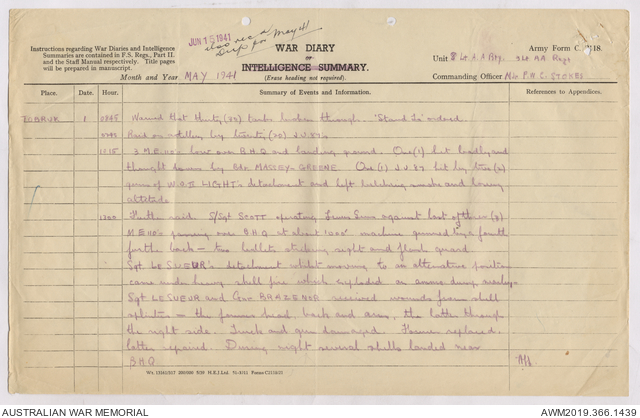 JUN 15 1941
also rec'd
Dup for May 41
Instructions regarding War Diaries and Intelligence
Summaries are contained in F.S. Regs., Part II.
and the Staff Manual respectively. Title pages
will be prepared in manuscript.
WAR DIARY
or
INTELLIGENCE SUMMARY.
(Erase heading not required).
Month and Year MAY 1941
Army Form C. 2118.
Unit 8 Lt. A A Bty. 3 Lt AA Regt
Commanding Officer P.W.C. STOKES
Place.
Date
Hour
Summary of Events and Information.
References to Appendices.
TOBRUK 1 0845 Warned that thirty (30) tanks broken through. 'Stand To' ordered.
Raid on artillery by twenty (20) J.U.87's
1015 3 M.E.110's low over B.H.Q and landing ground. One (1) hit badly and
thought down by Bdr. MASSEY-GREENE One (1) J.U.87 hit by two (2)
guns of W.O.II LIGHT's detachment and left belching smoke and losing
altitude.
1700 Further raid. S/Sgt SCOTT operating Lewis Guns against last of three (3)
M.E.110's passing over B.H.Q at about 1000' machine gunned by a fourth
further back - two bullets striking sight and flash guard.
Sgt LE SUEUR's detachment whilst moving to an alternative position
came under heavy shell fire which exploded an ammo dump nearby.
Sgt LE SUEUR and Gnr. BRAZENOR received wounds from shell
splinters - the former head, back and arm, the latter through
the right side. Truck and gun damaged. Former replaced,
latter repaired. During night several shells landed near
B.H.Q.
AUSTRALIAN WAR MEMORIAL
AWM2019.366.1439